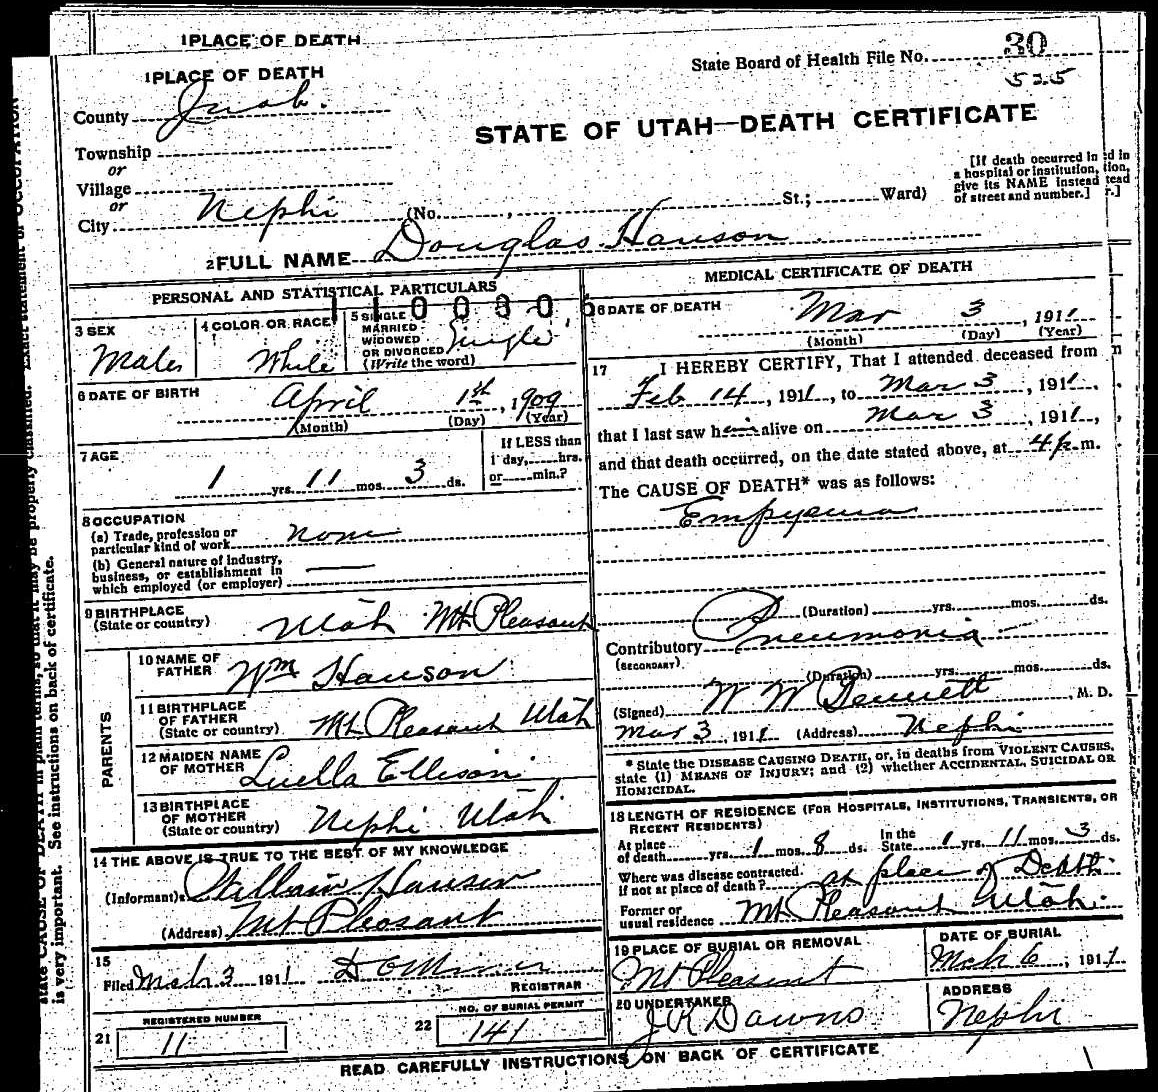 1 PLACE OF DEATH
1 PLACE OF DEATH
State Board of Health File No. 30
525
County Juab.
STATE OF UTAH—DEATH CERTIFICATE
Township
or
Village
or
City Nephi (No. , St.; Ward)
[If death occurred in
a hospital or institution,
give its NAME instead
of street and number.]
2 FULL NAME Douglas Hanson
PERSONAL AND STATISTICAL PARTICULARS
110030
3 SEX Male
4 COLOR OR RACE White
5 SINGLE
MARRIED
WIDOWED
OR DIVORCED
(Write the word) Single
6 DATE OF BIRTH April 1st, 1909
(Month) (Day) (Year)
7 AGE
1 yrs. 11 mos. 3 ds.
If LESS than
1 day, hrs.
or min.?
8 OCCUPATION
(a) Trade, profession or
particular kind of work none
(b) General nature of industry,
business, or establishment in
which employed (or employer)
9 BIRTHPLACE
(State or country) Utah Mt Pleasant
PARENTS
10 NAME OF
FATHER Wm Hanson
11 BIRTHPLACE
OF FATHER
(State or country) Mt Pleasant Utah
12 MAIDEN NAME
OF MOTHER Luella Ellison
13 BIRTHPLACE
OF MOTHER
(State or country) Nephi Utah
14 THE ABOVE IS TRUE TO THE BEST OF MY KNOWLEDGE
(Informant) William Hansen
(Address) Mt Pleasant
15
Filed Mch 3 1911
REGISTRAR
REGISTERED NUMBER
21 11
NO. OF BURIAL PERMIT
22 141
MEDICAL CERTIFICATE OF DEATH
16 DATE OF DEATH Mar 3, 1911
(Month) (Day) (Year)
17 I HEREBY CERTIFY, That I attended deceased from
Feb 14, 1911, to Mar 3, 1911,
that I last saw him alive on Mar 3, 1911,
and that death occurred, on the date stated above, at 4 p. m.
The CAUSE OF DEATH* was as follows:
Empyema
(Duration) yrs. mos. ds.
Contributory Pneumonia
(SECONDARY)
(Duration) yrs. mos. ds.
(Signed) W W , M. D.
Mar 3, 1911 (Address) Nephi
* State the DISEASE CAUSING DEATH, or, in deaths from VIOLENT CAUSES,
state (1) MEANS OF INJURY; and (2) whether ACCIDENTAL, SUICIDAL OR
HOMICIDAL.
18 LENGTH OF RESIDENCE (FOR HOSPITALS, INSTITUTIONS, TRANSIENTS, OR
RECENT RESIDENTS)
At place
of death yrs. 1 mos. 8 ds. In the
State 1 yrs. 11 mos. 3 ds.
Where was disease contracted,
if not at place of death? at place of Death.
Former or
usual residence Mt Pleasant Utah.
19 PLACE OF BURIAL OR REMOVAL
Mt Pleasant
DATE OF BURIAL
Mch 6, 1911
20 UNDERTAKER
J R Downs
ADDRESS
Nephi
READ CAREFULLY INSTRUCTIONS ON BACK OF CERTIFICATE
state CAUSE OF DEATH in plain terms, so that it may be properly classified. Exact statement of OCCUPATION
is very important. See instructions on back of certificate.